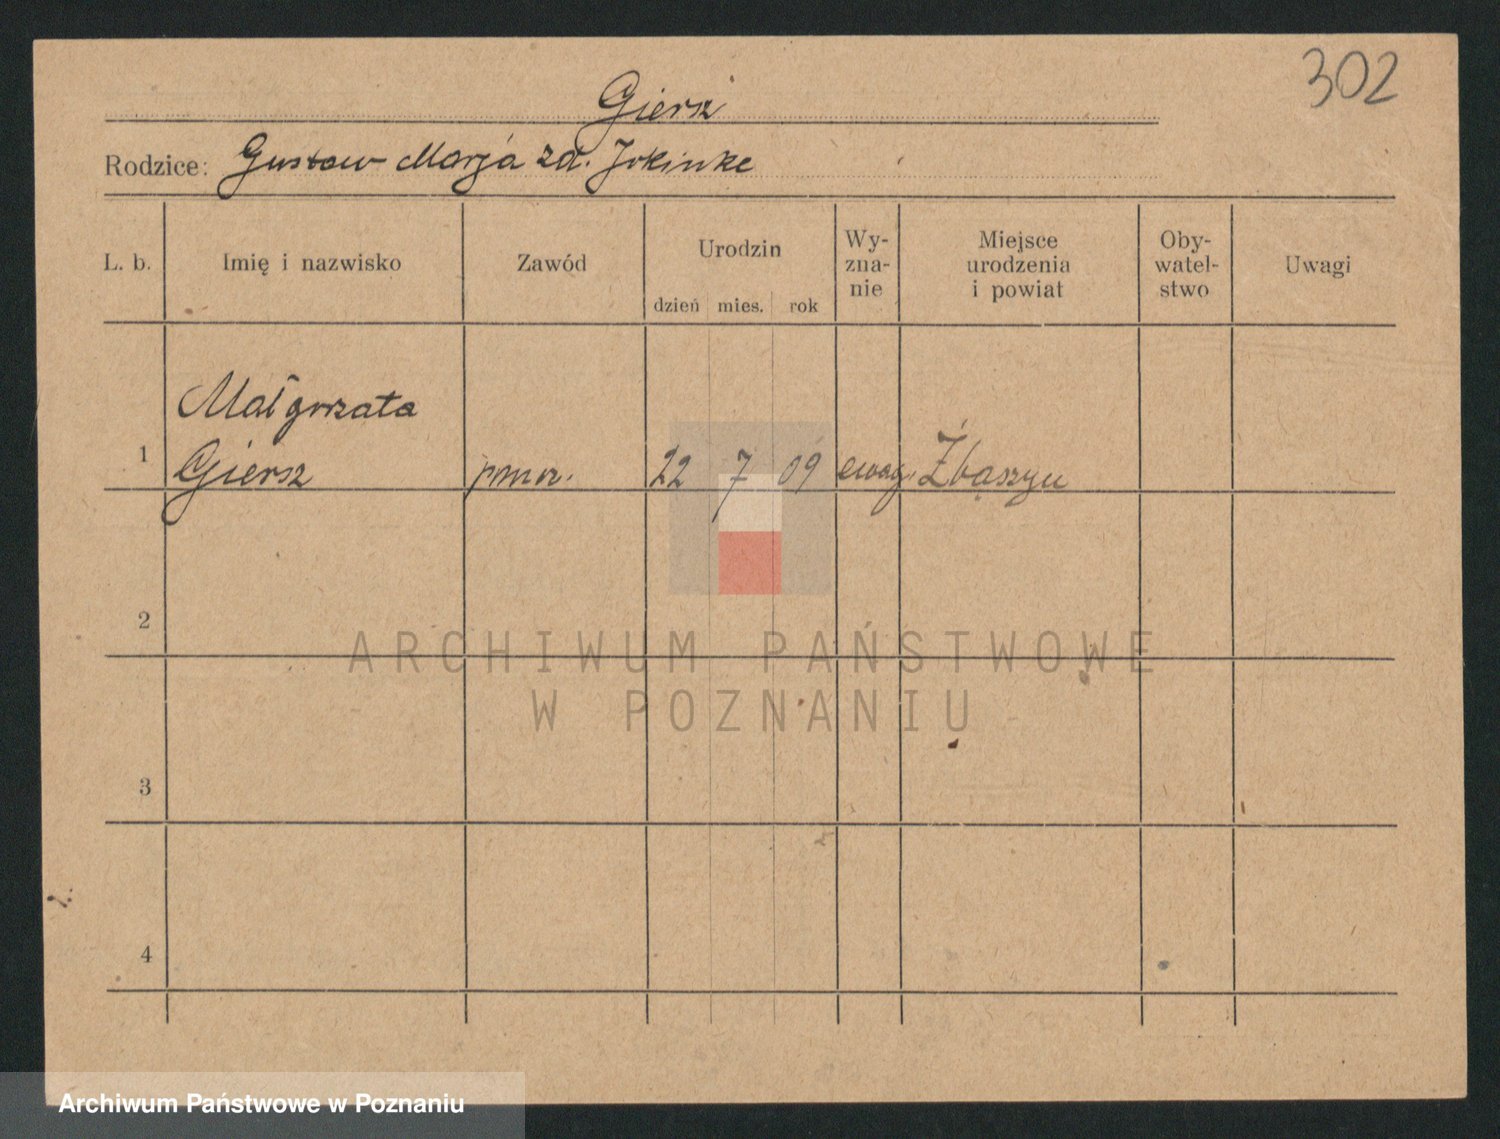 302
Giersz
Rodzice: Gustaw Marja zd.
L. b. Imię i nazwisko Zawód Urodzin dzień mies. rok Wy-zna-nie Miejsce urodzenia i powiat Oby-watel-stwo Uwagi
Małgorzata
1 Giersz 22 7 09 ewag. Zbąszyń
2
3
4
ARCHIWUM PAŃSTWOWE
W POZNANIU
Archiwum Państwowe w Poznaniu